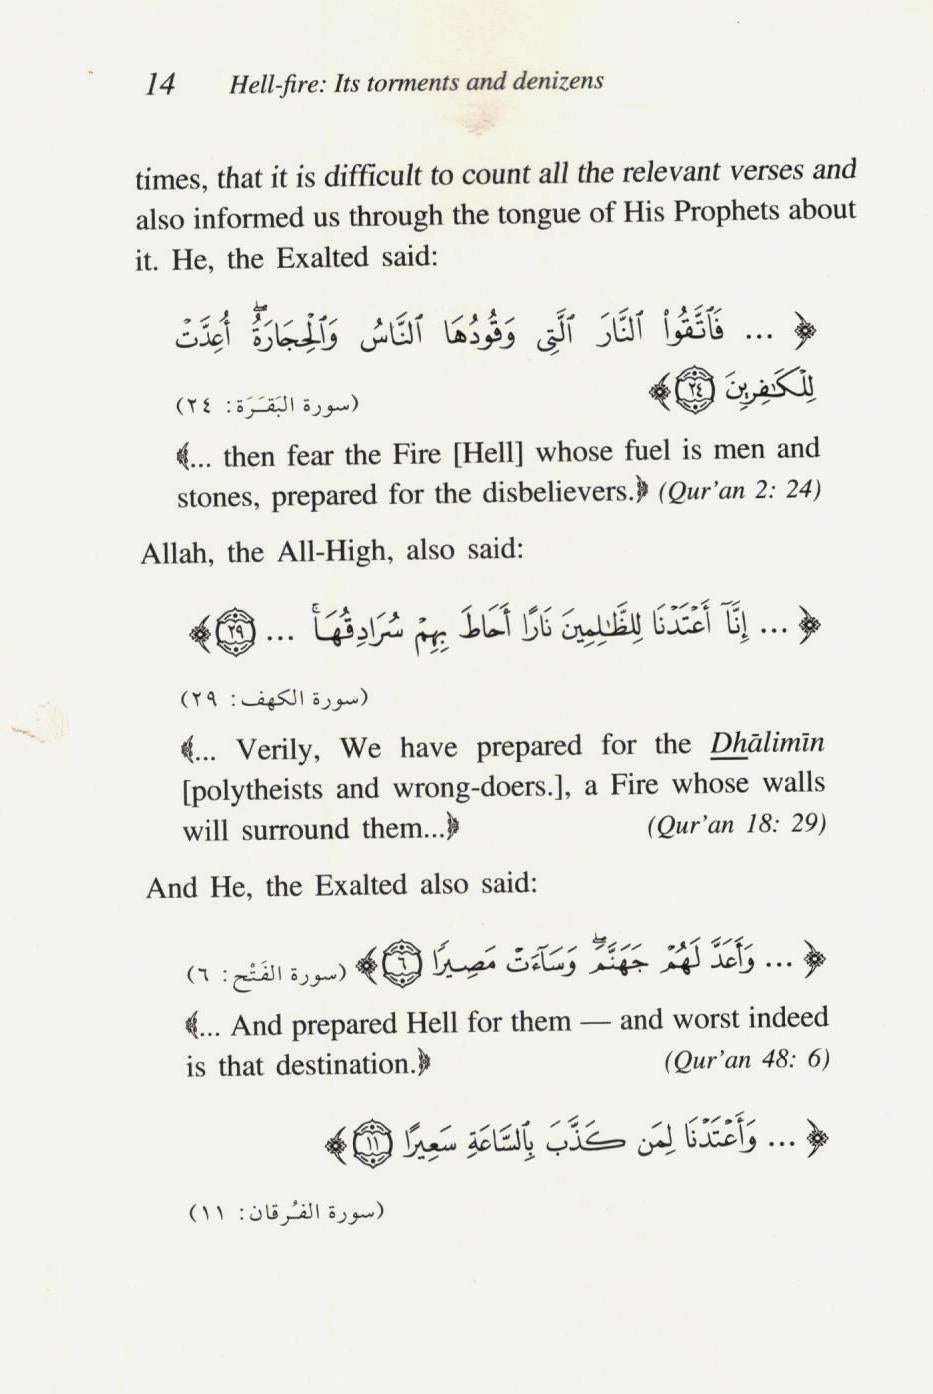 14 Hell-fire: Its torments and denizens
times, that it is difficult to count all the relevant verses and
also informed us through the tongue of His Prophets about
it. He, the Exalted said:
﴿ ... فَٱتَّقُوا۟ ٱلنَّارَ ٱلَّتِى وَقُودُهَا ٱلنَّاسُ وَٱلْحِجَارَةُ ۖ أُعِدَّتْ
لِلْكَـٰفِرِينَ ٢٤ ﴾ (سورة البَقَرَة: ٢٤)
﴾... then fear the Fire [Hell] whose fuel is men and
stones, prepared for the disbelievers.﴿ (Qur'an 2: 24)
Allah, the All-High, also said:
﴿ ... إِنَّآ أَعْتَدْنَا لِلظَّـٰلِمِينَ نَارًا أَحَاطَ بِهِمْ سُرَادِقُهَا ۚ ... ٢٩ ﴾
(سورة الكهف: ٢٩)
﴾... Verily, We have prepared for the Dhālimīn
[polytheists and wrong-doers.], a Fire whose walls
will surround them...﴿ (Qur'an 18: 29)
And He, the Exalted also said:
﴿ ... وَأَعَدَّ لَهُمْ جَهَنَّمَ ۖ وَسَآءَتْ مَصِيرًا ٦ ﴾ (سورة الفَتْح: ٦)
﴾... And prepared Hell for them — and worst indeed
is that destination.﴿ (Qur'an 48: 6)
﴿ ... وَأَعْتَدْنَا لِمَن كَذَّبَ بِٱلسَّاعَةِ سَعِيرًا ١١ ﴾
(سورة الفُرقان: ١١)